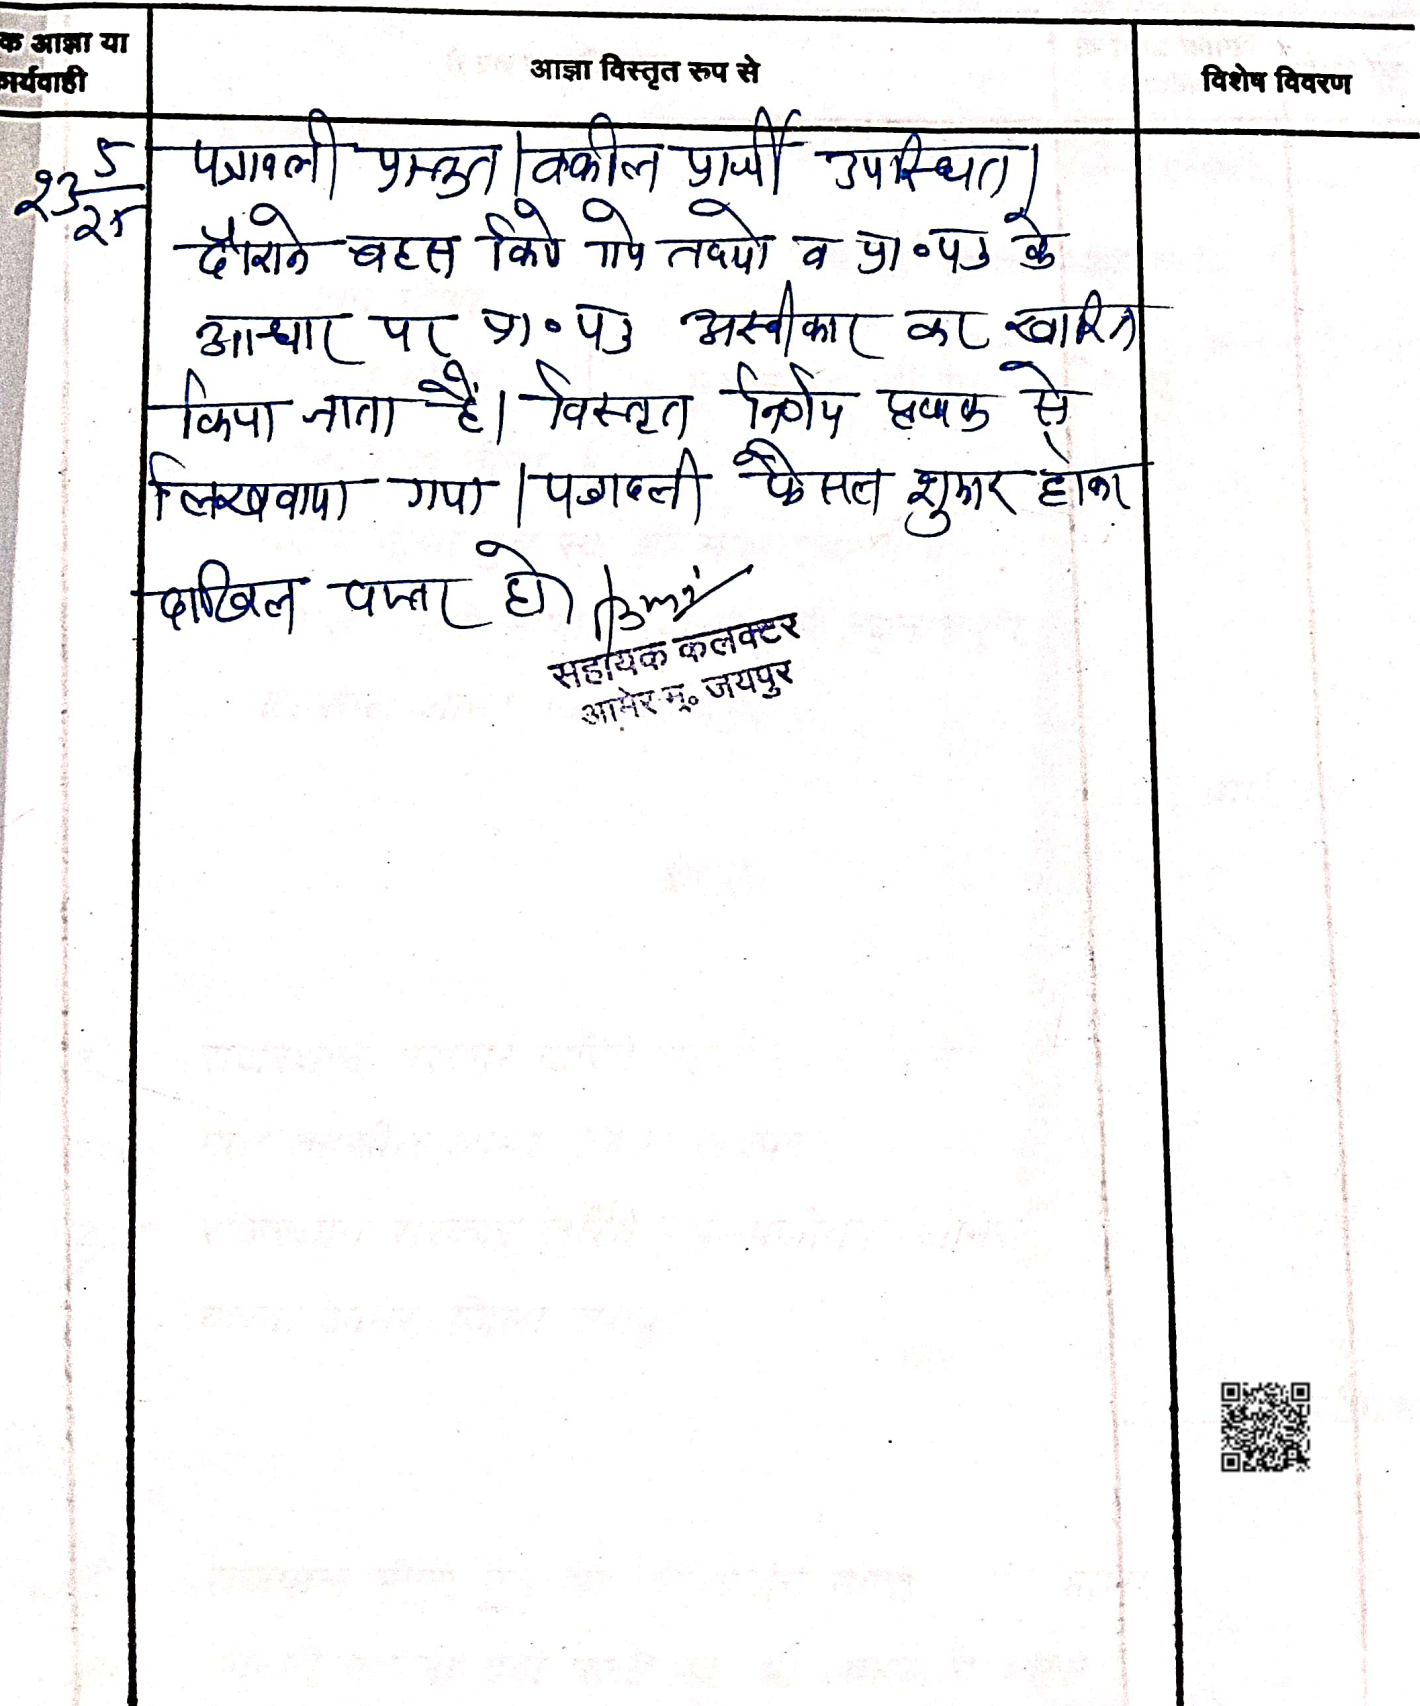 क आज्ञा या
कार्यवाही
आज्ञा विस्तृत रूप से
विशेष विवरण
23/5/25
पत्रावली प्रस्तुत। वकील प्रार्थी उपस्थित।
दौराने बहस किये गये तथ्यो व प्रा०पत्र के
आधार पर प्रा०पत्र अस्वीकार कर खारिज
किया जाता है। विस्तृत निर्णय पृथक से
लिखवाया गया। पत्रावली फैसल शुमार होकर
दाखिल दफ्तर हो।
सहायक कलक्टर
आमेर मु० जयपुर